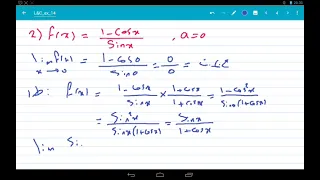 LEC_ex_14
2) f(x) = 1-Cosx / Sinx , a=0
lim f(x) x→0 = 1-Cos0 / Sin0 = 0/0 =
f(x) = 1-Cosx / Sinx × 1+Cosx / 1+Cosx = 1-Cos²x / Sinx(1+Cosx)
= Sin²x / Sinx(1+Cosx) = Sinx / 1+Cosx
lim Si